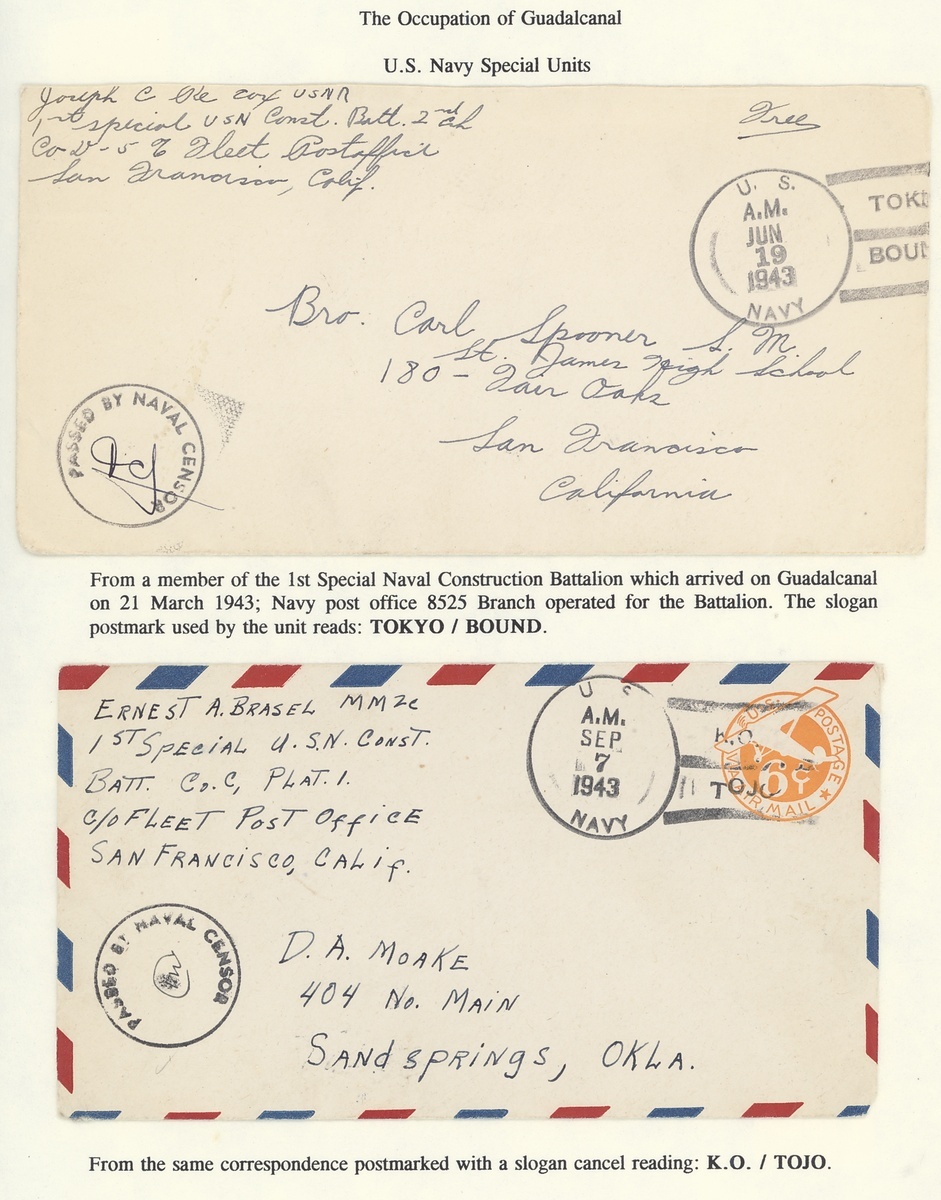 The Occupation of Guadalcanal
U.S. Navy Special Units
Joseph C Re cox USNR
1st special USN Const. Batt. 2nd
Co D-5 % Fleet Postoffice
San Francisco, Calif.
Free
U. S.
A.M.
JUN
19
1943
NAVY
TOK
BOUN
Bro. Carl Spooner S. M.
St. James High School
180 - Fair Oaks
San Francisco
California
PASSED BY NAVAL CENSOR
From a member of the 1st Special Naval Construction Battalion which arrived on Guadalcanal
on 21 March 1943; Navy post office 8525 Branch operated for the Battalion. The slogan
postmark used by the unit reads: TOKYO / BOUND.
ERNEST A. BRASEL MM2c
1ST SPECIAL U.S.N. CONST.
BATT. Co. C, PLAT. 1.
c/o FLEET POST OFFICE
SAN FRANCISCO, CALIF.
U S
A.M.
SEP
7
1943
NAVY
K.O.
TOJO
U.S. POSTAGE
6¢
VIA AIR MAIL
PASSED BY NAVAL CENSOR
D. A. MOAKE
404 No. MAIN
SANDSPRINGS, OKLA.
From the same correspondence postmarked with a slogan cancel reading: K.O. / TOJO.